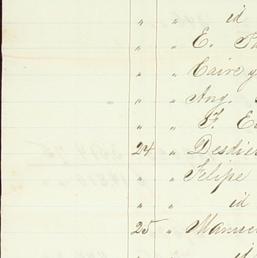 " " id
" " E.
" " Caire y
" " Ang.
" " F. E
24 " Desdier
" " Felipe
" " id
25 " Manue
id